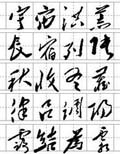 宇宙洪荒
辰宿列張
秋收冬藏
律呂調陽
露結為霜